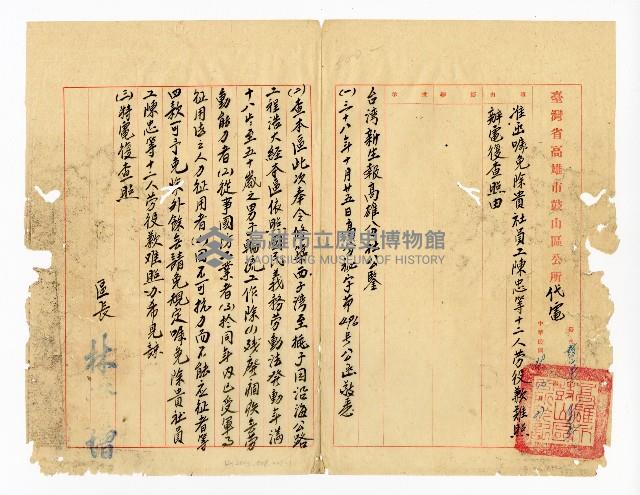 臺灣省高雄市鼓山區公所代電
事由
准函囑免除貴社員工陳忠等十二人勞役歉難照
辦電復查照由
台灣新生報高雄分社公鑒
(一)三十八年十月廿五日高分社字第496号公函敬悉
(二)查本區此次奉令修築西子灣至桃子園沿海公路
工程浩大經本區依照義務勞動法發動年滿
十八歲至五十歲之男子輪流工作除(1)殘廢痼疾無勞
動能力者(2)從事國防工業者(3)於同年內已受軍事
征用區之人力征用者(4)因不可抗力而不能應征者等
四款可予免除外餘無請免規定囑免除貴社員
工陳忠等十二人勞役歉難照办希見諒
(三)特電復查照
區長
林
高雄市立歷史博物館
KAOHSIUNG MUSEUM OF HISTORY